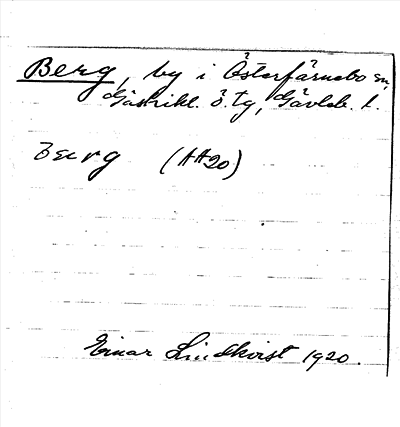 Berg, by i Österfärnebo sn,
Gästrikl. ö. tg, Gävleb. l.
Berg (AA20)
Einar Lindkvist 1920.